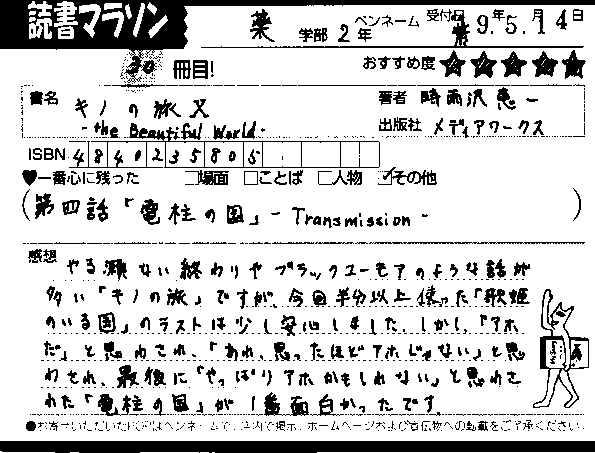 読書マラソン
薬 学部 2年 ペンネーム 受付日 9年5月14日
30 冊目! おすすめ度 ★★★★★
書名 キノの旅 X 著者 時雨沢恵一
-the Beautiful World- 出版社 メディアワークス
ISBN 4840235805
♥一番心に残った □場面 □ことば □人物 ☑その他
(第四話「電柱の国」- Transmission -)
感想 やる瀬ない終わりやブラックユーモアのような話が
多い「キノの旅」ですが、今回半分以上使った「歌姫
のいる国」のラストは少し安心しました。しかし、「アホ
だ」と思わされ、「あれ、思ったほどアホじゃない」と思
わされ、最後に「やっぱりアホかもしれない」と思わさ
れた「電柱の国」が1番面白かったです。
●お寄せいただいたPOPはペンネームで、店内で掲示、ホームページおよび宣伝物への転載をご了承ください。